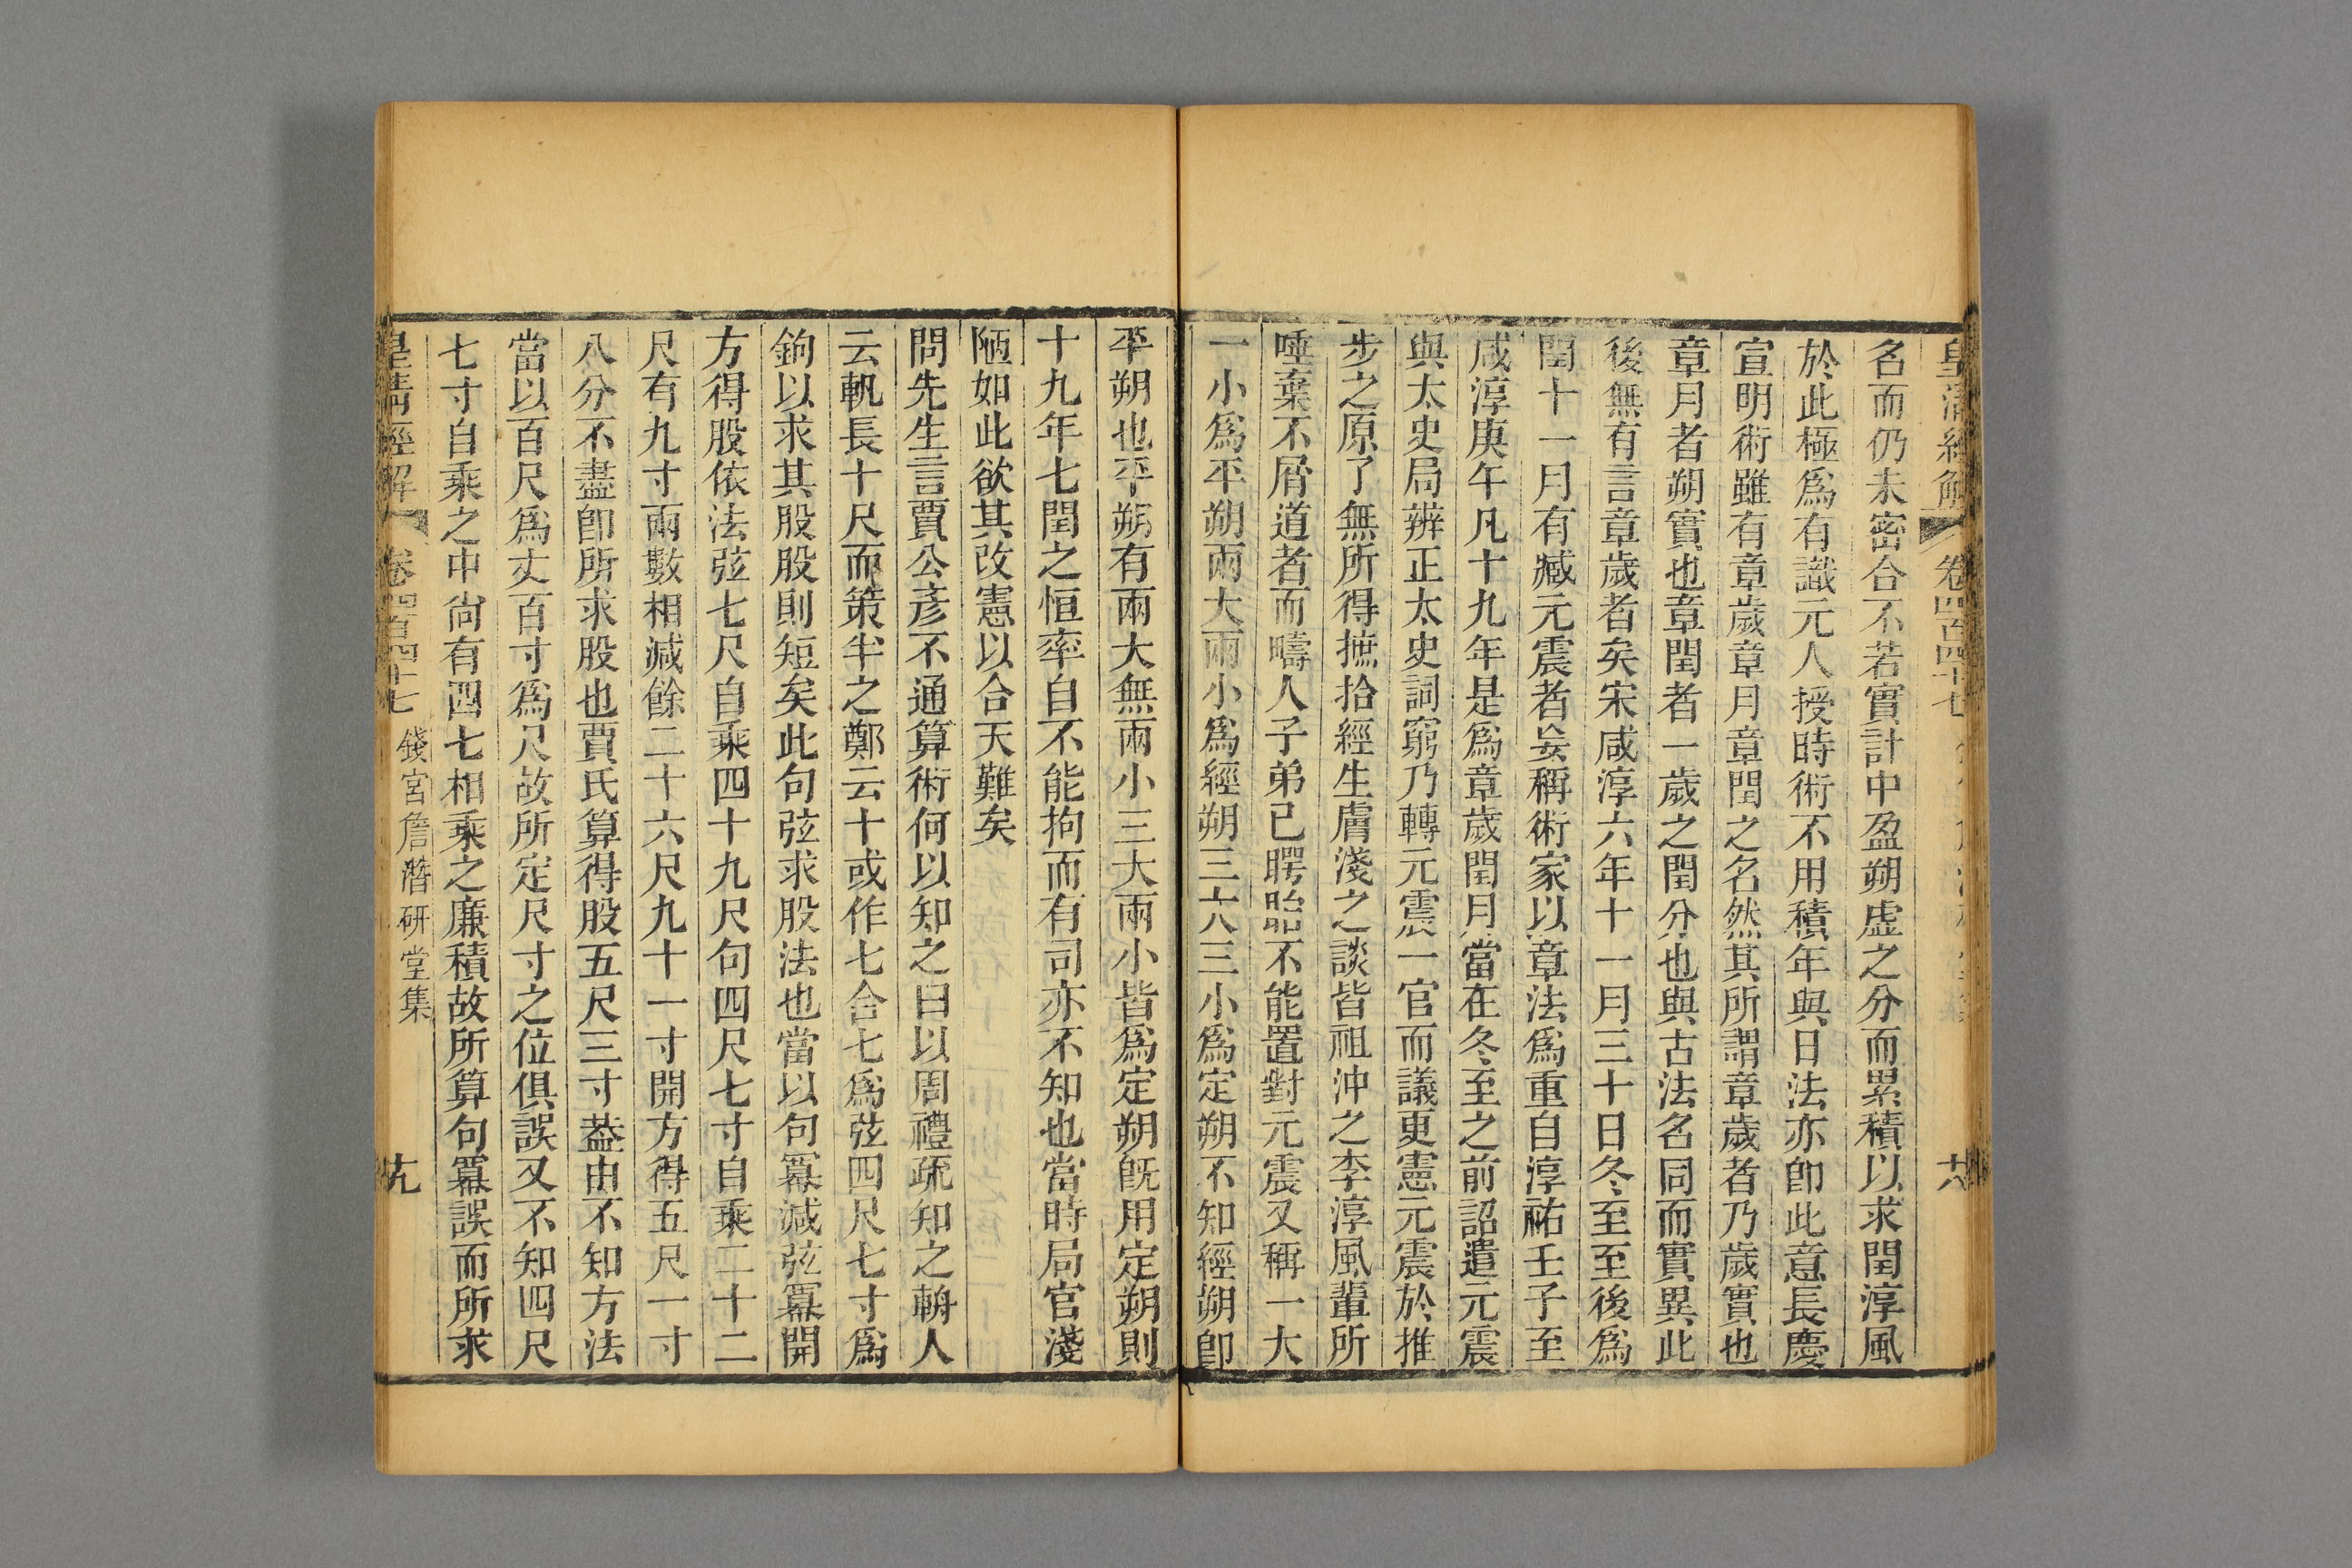 皇清經解 卷四百四十七
六
名而仍未密合不若實計中盈朔虛之分而累積以求閏淳風
於此極爲有識元人授時術不用積年與日法亦卽此意長慶
宣明術雖有章歲章月章閏之名然其所謂章歲者乃歲實也
章月者朔實也章閏者一歲之閏分也與古法名同而實異此
後無有言章歲者矣宋咸淳六年十一月三十日冬至至後爲
閏十一月有臧元震者妄稱術家以章法爲重自淳祐壬子至
咸淳庚午凡十九年是爲章歲閏月當在冬至之前詔遣元震
與太史局辨正太史詞窮乃轉元震一官而議更憲元震於推
步之原了無所得摭拾經生膚淺之談皆祖沖之李淳風輩所
唾棄不屑道者而疇人子弟已腭眙不能置對元震又稱一大
一小爲平朔兩大兩小爲經朔三大三小爲定朔不知經朔卽
平朔也平朔有兩大無兩小三大兩小皆爲定朔旣用定朔則
十九年七閏之恒率自不能拘而有司亦不知也當時局官淺
陋如此欲其改憲以合天難矣
問先生言賈公彥不通算術何以知之曰以周禮疏知之輈人
云軓長十尺而策半之鄭云十或作七合七爲弦四尺七寸爲
鉤以求其股股則短矣此句弦求股法也當以句冪減弦冪開
方得股依法弦七尺自乘四十九尺句四尺七寸自乘二十二
尺有九寸兩數相減餘二十六尺九十一寸開方得五尺一寸
八分不盡卽所求股也賈氏算得股五尺三寸葢由不知方法
當以百尺爲丈百寸爲尺故所定尺寸之位俱誤又不知四尺
七寸自乘之中尙有四七相乘之廉積故所算句冪誤而所求
皇清經解 卷四百四十七 錢宮詹潛研堂集